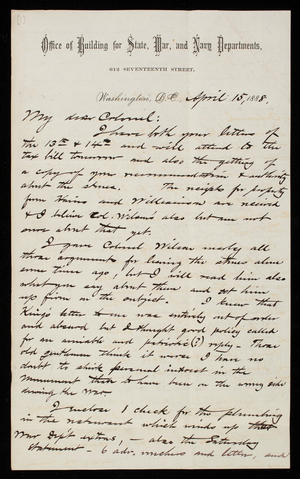 Office of Building for State, War, and Navy Departments,
612 SEVENTEENTH STREET,
Washington, D.C., April 15, 1888.
My dear Colonel:
I have both your letters of
the 13th & 14th and will attend to the
tax bill tomorrow and also the getting of
a copy of your recommendation & authority
about the stones. The receipts for property
from Hains and Williamson are received
& I believe Col. Wilson's also but am not
sure about that yet.
I gave Colonel Wilson nearly all
those arguments for leaving the stones alone
some time ago, but I will read him also
what you say about them and set him
up firm on the subject. I knew that
King's letter to me was entirely out of order
and absurd but I thought good policy called
for an amiable and patriotic (?) reply. These
old gentlemen think it worse I have no
doubt to show personal interest in the
Monument than to have been on the wrong side
during the War.
I enclose 1 check for the plumbing
in the restaurant which winds up that
War Dep't extras, - also the Saturday
statement - 6 adv. vouchers and letter, and